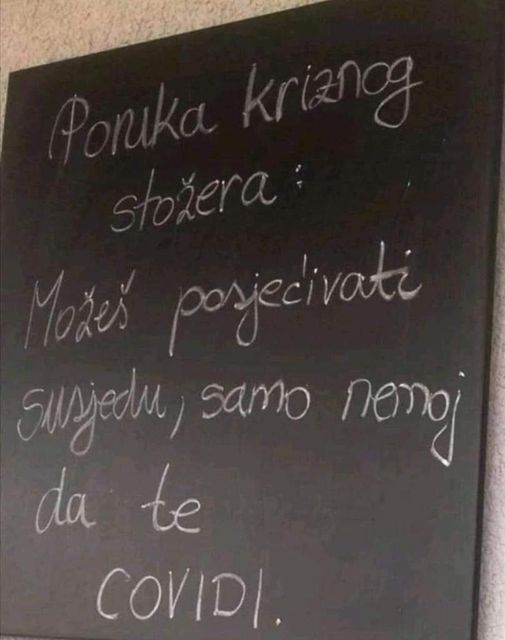 Poruka kriznog
stožera:
Možeš posjećivati
susjedu, samo nemoj
da te
COVIDI.